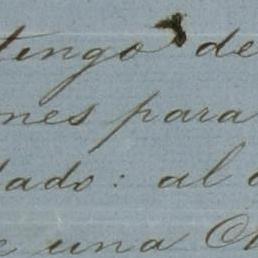 tengo de
nes para
dado: al
e una